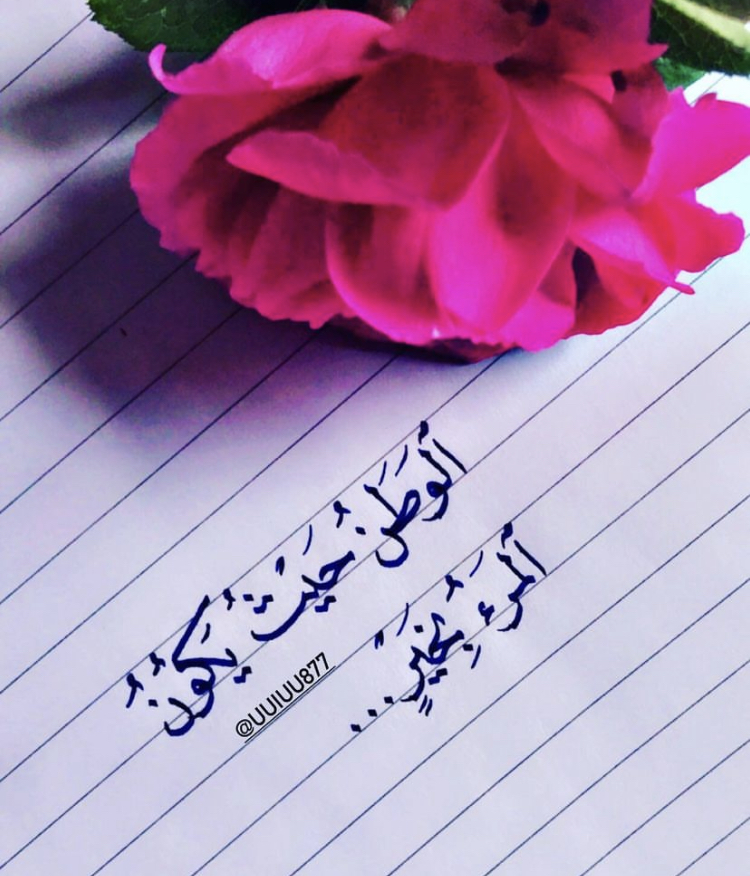 اَلْوَطَنُ حَيْثُ يَكُوْنُ
اَلْمَرْءُ بِخَيْرٍ...
@UUIUU877